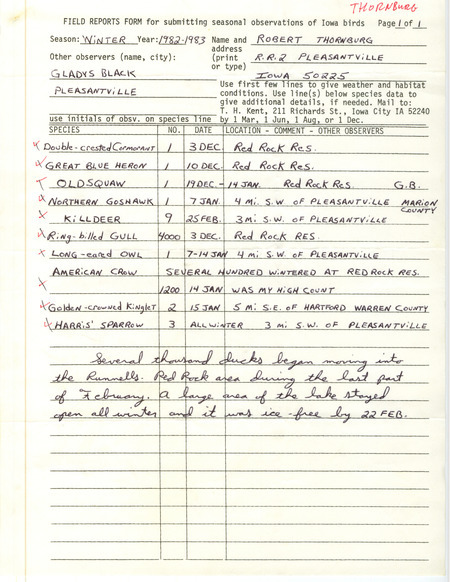 THORNBURG
FIELD REPORTS FORM for submitting seasonal observations of Iowa birds Page 1 of 1
Season: WINTER Year: 1982-1983 Name and address (print or type) ROBERT THORNBURG
Other observers (name, city): R.R.2 PLEASANTVILLE
GLADYS BLACK IOWA 50225
PLEASANTVILLE
Use first few lines to give weather and habitat
conditions. Use line(s) below species data to
give additional details, if needed. Mail to:
T. H. Kent, 211 Richards St., Iowa City IA 52240
use initials of obsv. on species line by 1 Mar, 1 Jun, 1 Aug, or 1 Dec.
SPECIES NO. DATE LOCATION - COMMENT - OTHER OBSERVERS
Double-crested Cormorant 1 3 DEC. Red Rock Res.
GREAT BLUE HERON 1 10 DEC. Red Rock Res.
OLDSQUAW 1 19 DEC - 14 JAN. Red Rock Res. G.B.
NORTHERN GOSHAWK 1 7 JAN. 4 mi. S.W. OF PLEASANTVILLE MARION COUNTY
KILLDEER 9 25 FEB. 3 mi. S.W. OF PLEASANTVILLE
Ring-billed GULL 4000 3 DEC. Red Rock RES.
LONG-eared OWL 1 7-14 JAN 4 mi. S.W. OF PLEASANTVILLE
AMERICAN CROW SEVERAL HUNDRED WINTERED AT RED ROCK RES.
1200 14 JAN WAS MY HIGH COUNT
Golden-crowned Kinglet 2 15 JAN 5 mi. S.E. OF HARTFORD WARREN COUNTY
HARRIS' SPARROW 3 ALL WINTER 3 mi. S.W. OF PLEASANTVILLE
Several thousand ducks began moving into
the Runnells-Red Rock area during the last part
of February. A large area of the lake stayed
open all winter and it was ice-free by 22 FEB.